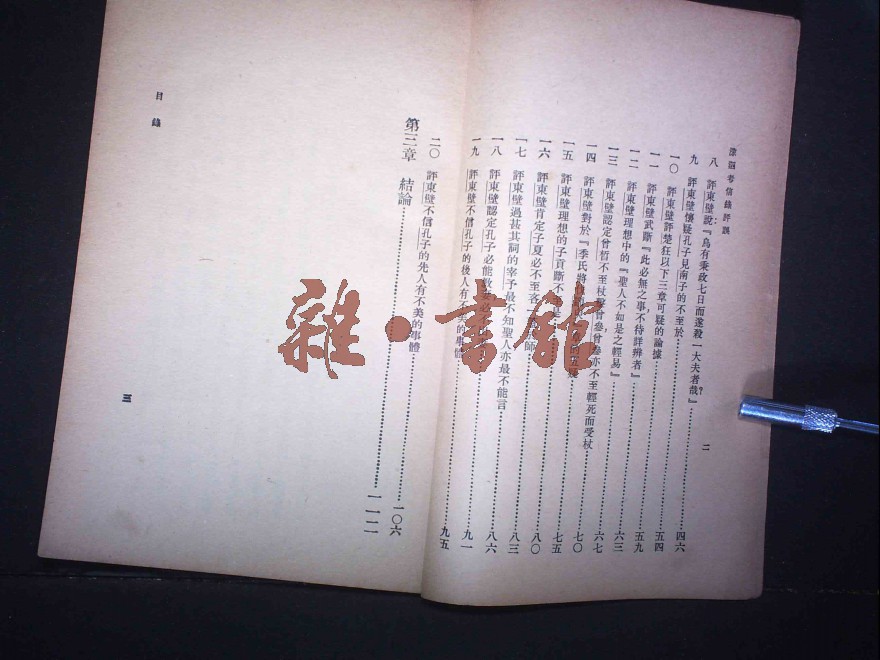 洙泗考信錄評誤
二
八 評東壁說『烏有秉政七日而遂殺一大夫者哉?』 四六
九 評東壁懷疑孔子見南子的不至於 五四
一〇 評東壁評楚狂以下三章可疑的論據 五九
一一 評東壁武斷『此必無之事,不待詳辨者』 六三
一二 評東壁理想中的『聖人不如是之輕易』 六七
一三 評東壁認定曾晳不至杖擊曾參曾參亦不至輕死而受杖 七〇
一四 評東壁對於『季氏將
一五 評東壁理想的子貢斷不 七五
一六 評東壁肯定子夏必不至吝一 八〇
一七 評東壁過甚其詞的宰予最不知聖人亦最不能言 八三
一八 評東壁認定孔子必能教妻必不 八六
一九 評東壁不信孔子的後人有不美的事體 九一
九五
二〇 評東壁不信孔子的先人有不美的事體 一〇六
第三章 結論 一一二
目錄
三
雜·書館